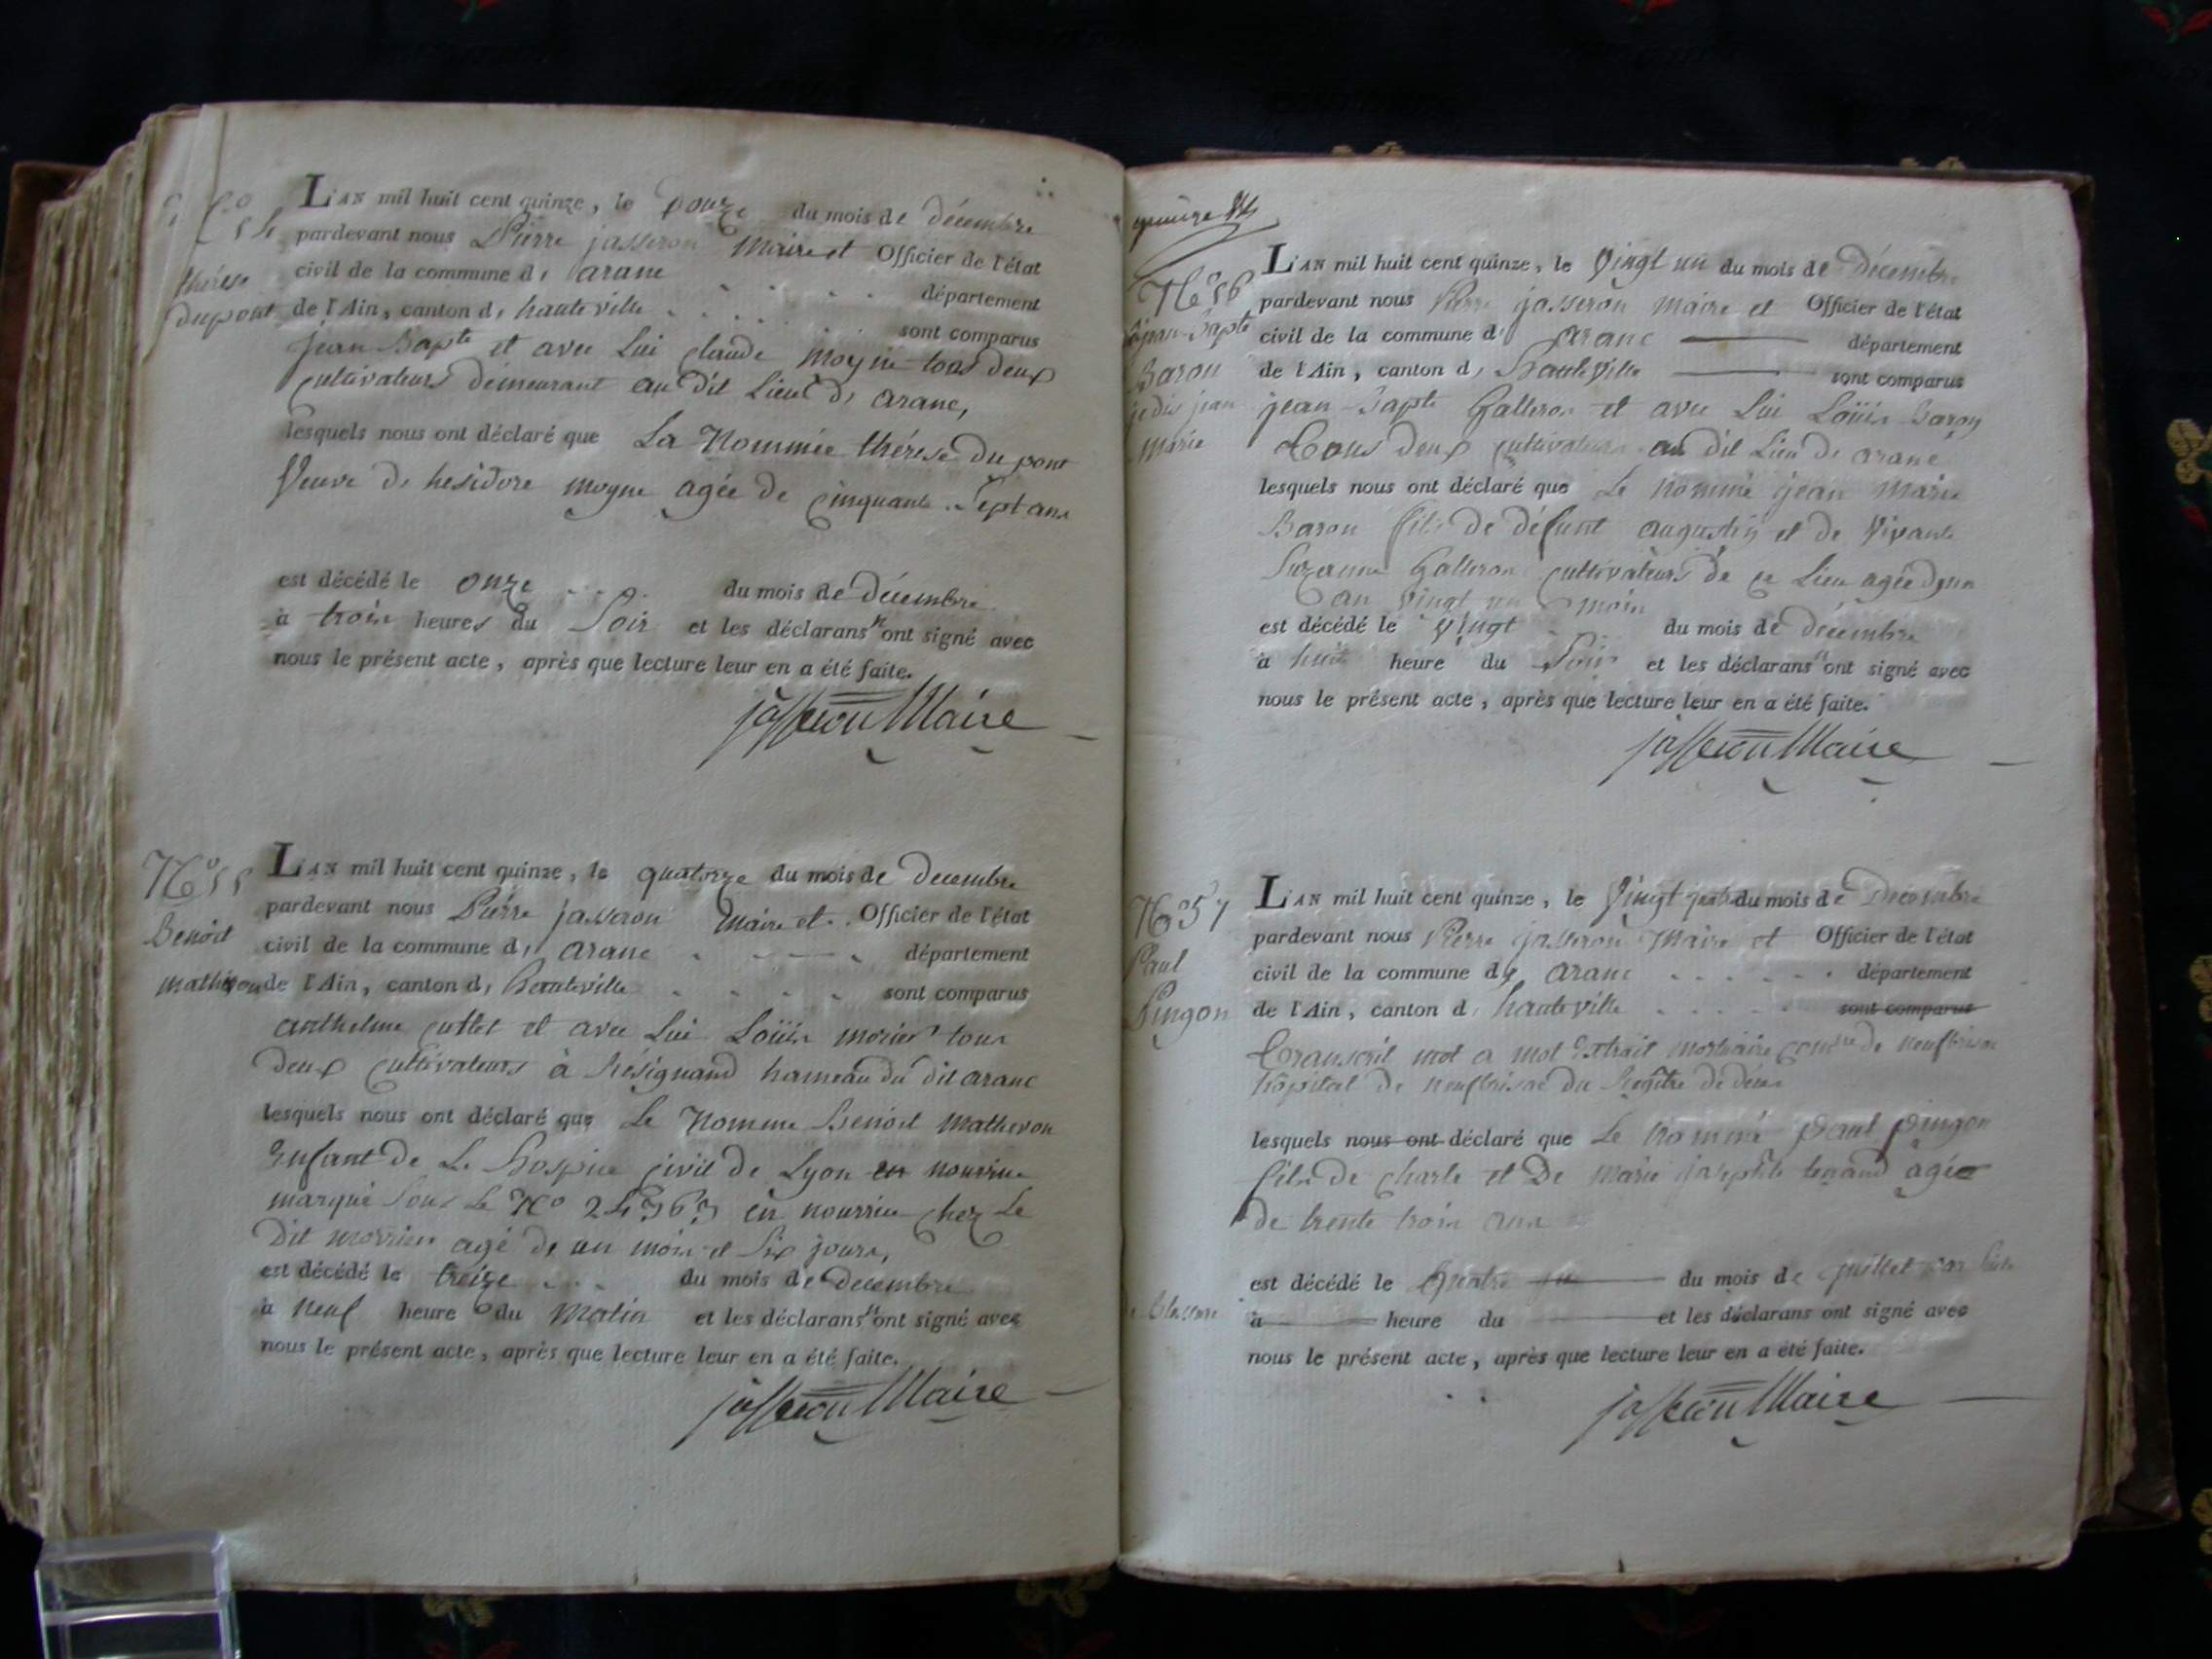 N.o 54
thérese
dupont
L'AN mil huit cent quinze, le douze du mois de décembre
pardevant nous Pierre jasseron Maire et Officier de l'état
civil de la commune d, aranc département
de l'Ain, canton d, hauteville sont comparus
jean Bapte et avec Lui claude moyne tous deux
cultivateurs demeurant au dit Lieu d, aranc,
lesquels nous ont déclaré que La Nommée thérese du pont
Veuve de hesidore moyne agée de cinquante Sept ans
est décédé le onze du mois de décembre
à trois heures du Soir et les déclarans n ont signé avec
nous le présent acte, après que lecture leur en a été faite.
jasseron Maire
N.o 55
Benoit
matheron
L'AN mil huit cent quinze, le quatorze du mois de decembre
pardevant nous Pierre jasseron Maire et Officier de l'état
civil de la commune d, aranc département
de l'Ain, canton d, hauteville sont comparus
anthelme cuttet et avec Lui Loüis morier tous
deux cultivateurs à Résignand hameau du dit aranc
lesquels nous ont déclaré que Le Nomme Benoit Matheron
Enfant de L. hospice civil de Lyon en nourrice
marqué Sous Le No en nourrice chez Le
Dit agé de un mois et Six jours,
est décédé le treize du mois de decembre
à neuf heure du Matin et les déclarans n ont signé avec
nous le présent acte, après que lecture leur en a été faite.
jasseron Maire
N.o 56
jean Bapte
Baron
je dis jean
marie
L'AN mil huit cent quinze, le Vingt un du mois de décembre
pardevant nous Pierre jasseron maire et Officier de l'état
civil de la commune d aranc département
de l'Ain, canton d, hauteville sont comparus
jean Bapte Galleron et avec Lui Loüis Baron
Tous deux cultivateurs au dit Lieu de aranc
lesquels nous ont déclaré que Le nommé jean marie
Baron fils de défunt augustin et de Vivante
Suzanne Galleron cultivateurs de ce Lieu agée d'un
an vingt un mois
est décédé le Vingt du mois de décembre
à huit heure du Soir et les déclarans n ont signé avec
nous le présent acte, après que lecture leur en a été faite.
jasseron Maire
N.o 57
Paul
Pingon
L'AN mil huit cent quinze, le Vingt du mois de Decembre
pardevant nous Pierre jasseron Maire et Officier de l'état
civil de la commune d, aranc département
de l'Ain, canton d, hauteville sont comparus
Transcrit mot a mot Extrait mortuaire de neufbrisac
hôpital de neufbrisac du Regître de décès
lesquels nous ont déclaré que Le nommé Paul Pingon
fils de charle et De marie agée
de trente trois ans
est décédé le quatre du mois de juillet par Suite
de blessure
à heure du et les déclarans ont signé avec
nous le présent acte, après que lecture leur en a été faite.
jasseron Maire